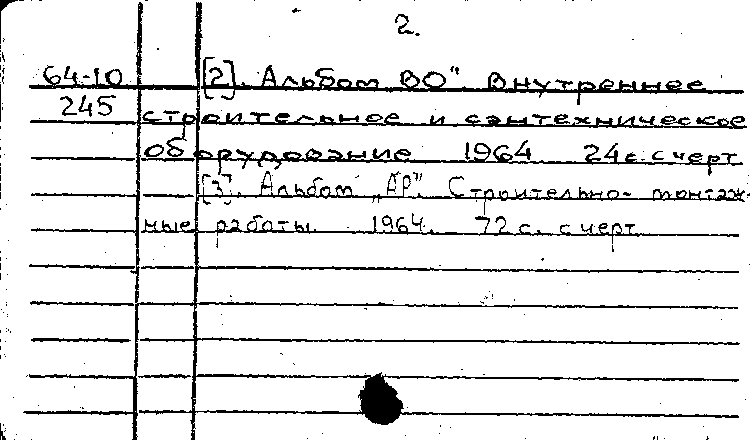 2.
64-10 [2]. Альбом ВО". Внутреннее
245 строительное и сантехническое
оборудование 1964 24с. с черт.
[3]. Альбом „АР". Строительно-монтаж-
ные работы. 1964. 72 с. с черт.